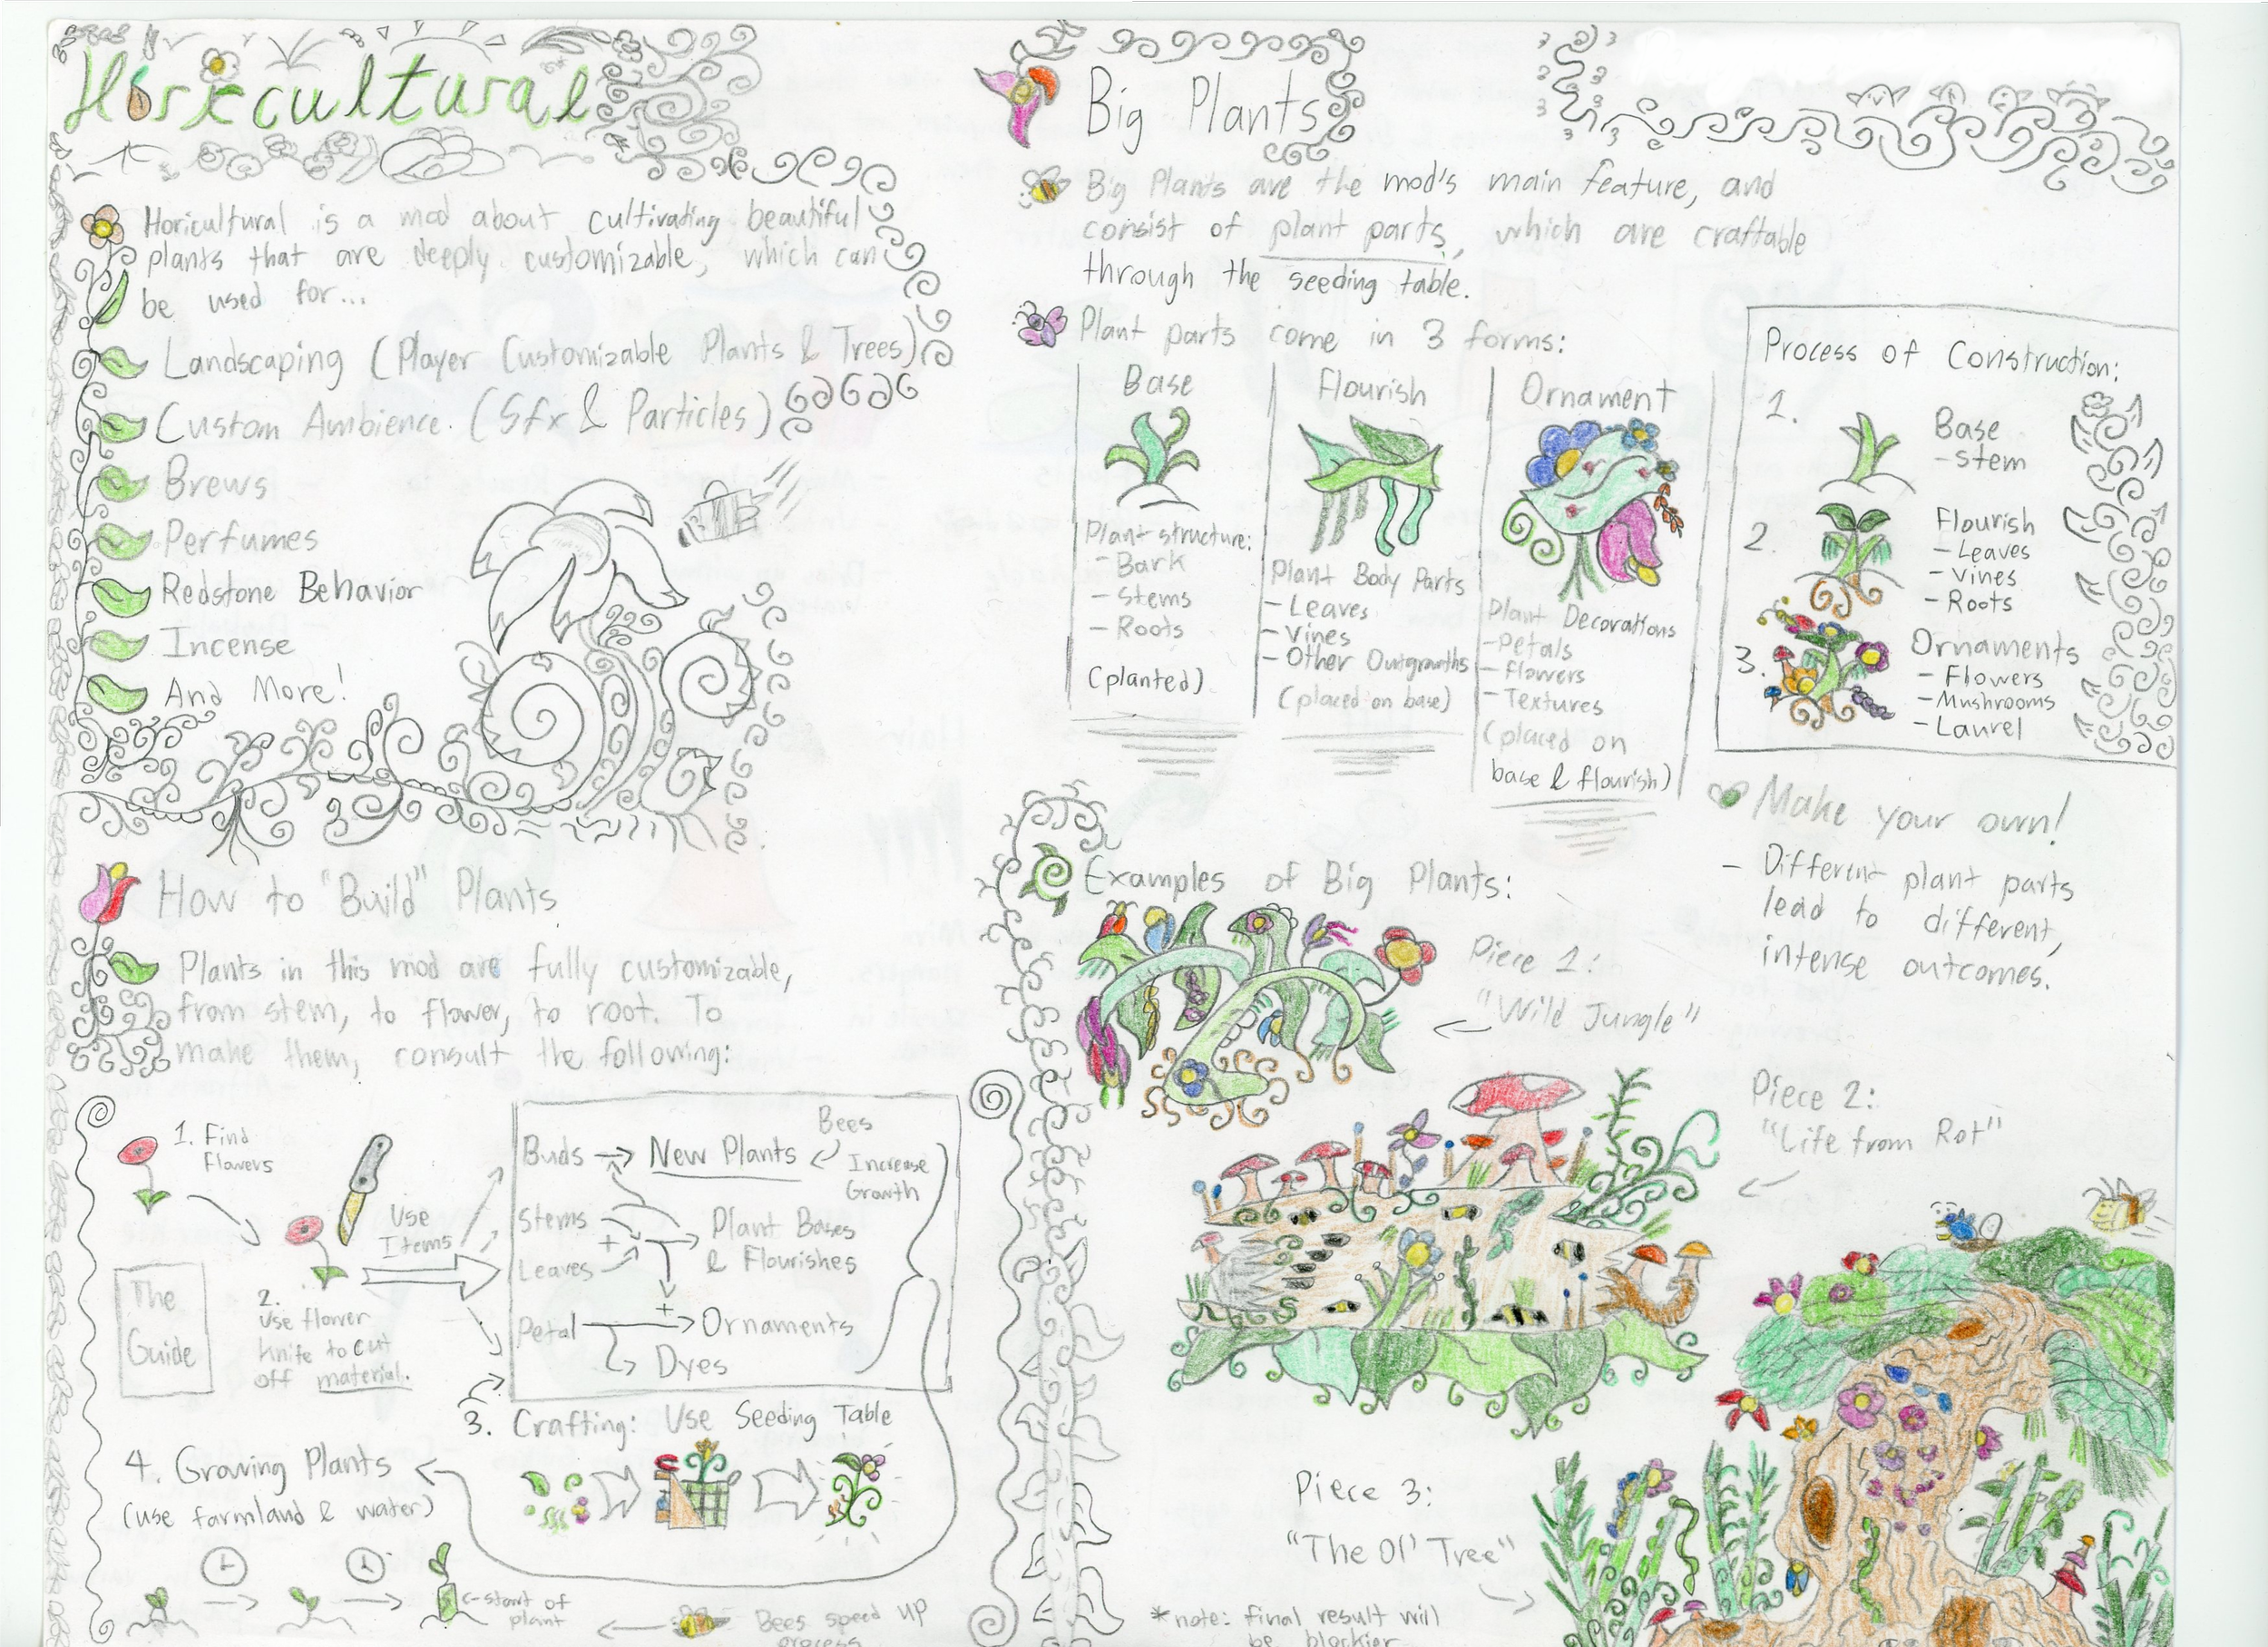 Horticultural
Horicultural is a mod about cultivating beautiful
plants that are deeply customizable, which can
be used for...
Landscaping (Player Customizable Plants & Trees)
Custom Ambience. (Sfx & Particles)
Brews
Perfumes
Redstone Behavior
Incense
And More!
How to "Build" Plants
Plants in this mod are fully customizable,
from stem, to flower, to root. To
make them, consult the following:
1. Find
Flowers
The
Guide
2.
Use flower
knife to cut
off material.
Use
Items
Buds
New Plants
Bees
Increase
Growth
Stems
+
Leaves
Plant Bases
& Flourishes
Petal
+
Ornaments
Dyes
3. Crafting: Use Seeding Table
4. Growing Plants
(use farmland & water)
<-start of
plant
Bees speed up
process
Big Plants
Big Plants are the mod's main feature, and
consist of plant parts, which are craftable
through the seeding table.
Plant parts come in 3 forms:
Base
Plant structure:
- Bark
- Stems
- Roots
(planted)
Flourish
Plant Body Parts
- Leaves
- Vines
- Other Outgrowths
(placed on base)
Ornament
Plant Decorations
- Petals
- Flowers
- Textures
(placed on
base & flourish)
Process of Construction:
1.
Base
- Stem
2.
Flourish
- Leaves
- Vines
- Roots
3.
Ornaments
- Flowers
- Mushrooms
- Laurel
Make your own!
- Different plant parts
lead to different,
intense outcomes.
Examples of Big Plants:
Piece 1:
"Wild Jungle"
Piece 2:
"Life from Rot"
Piece 3:
"The Ol' Tree"
*note: final result will
be blockier